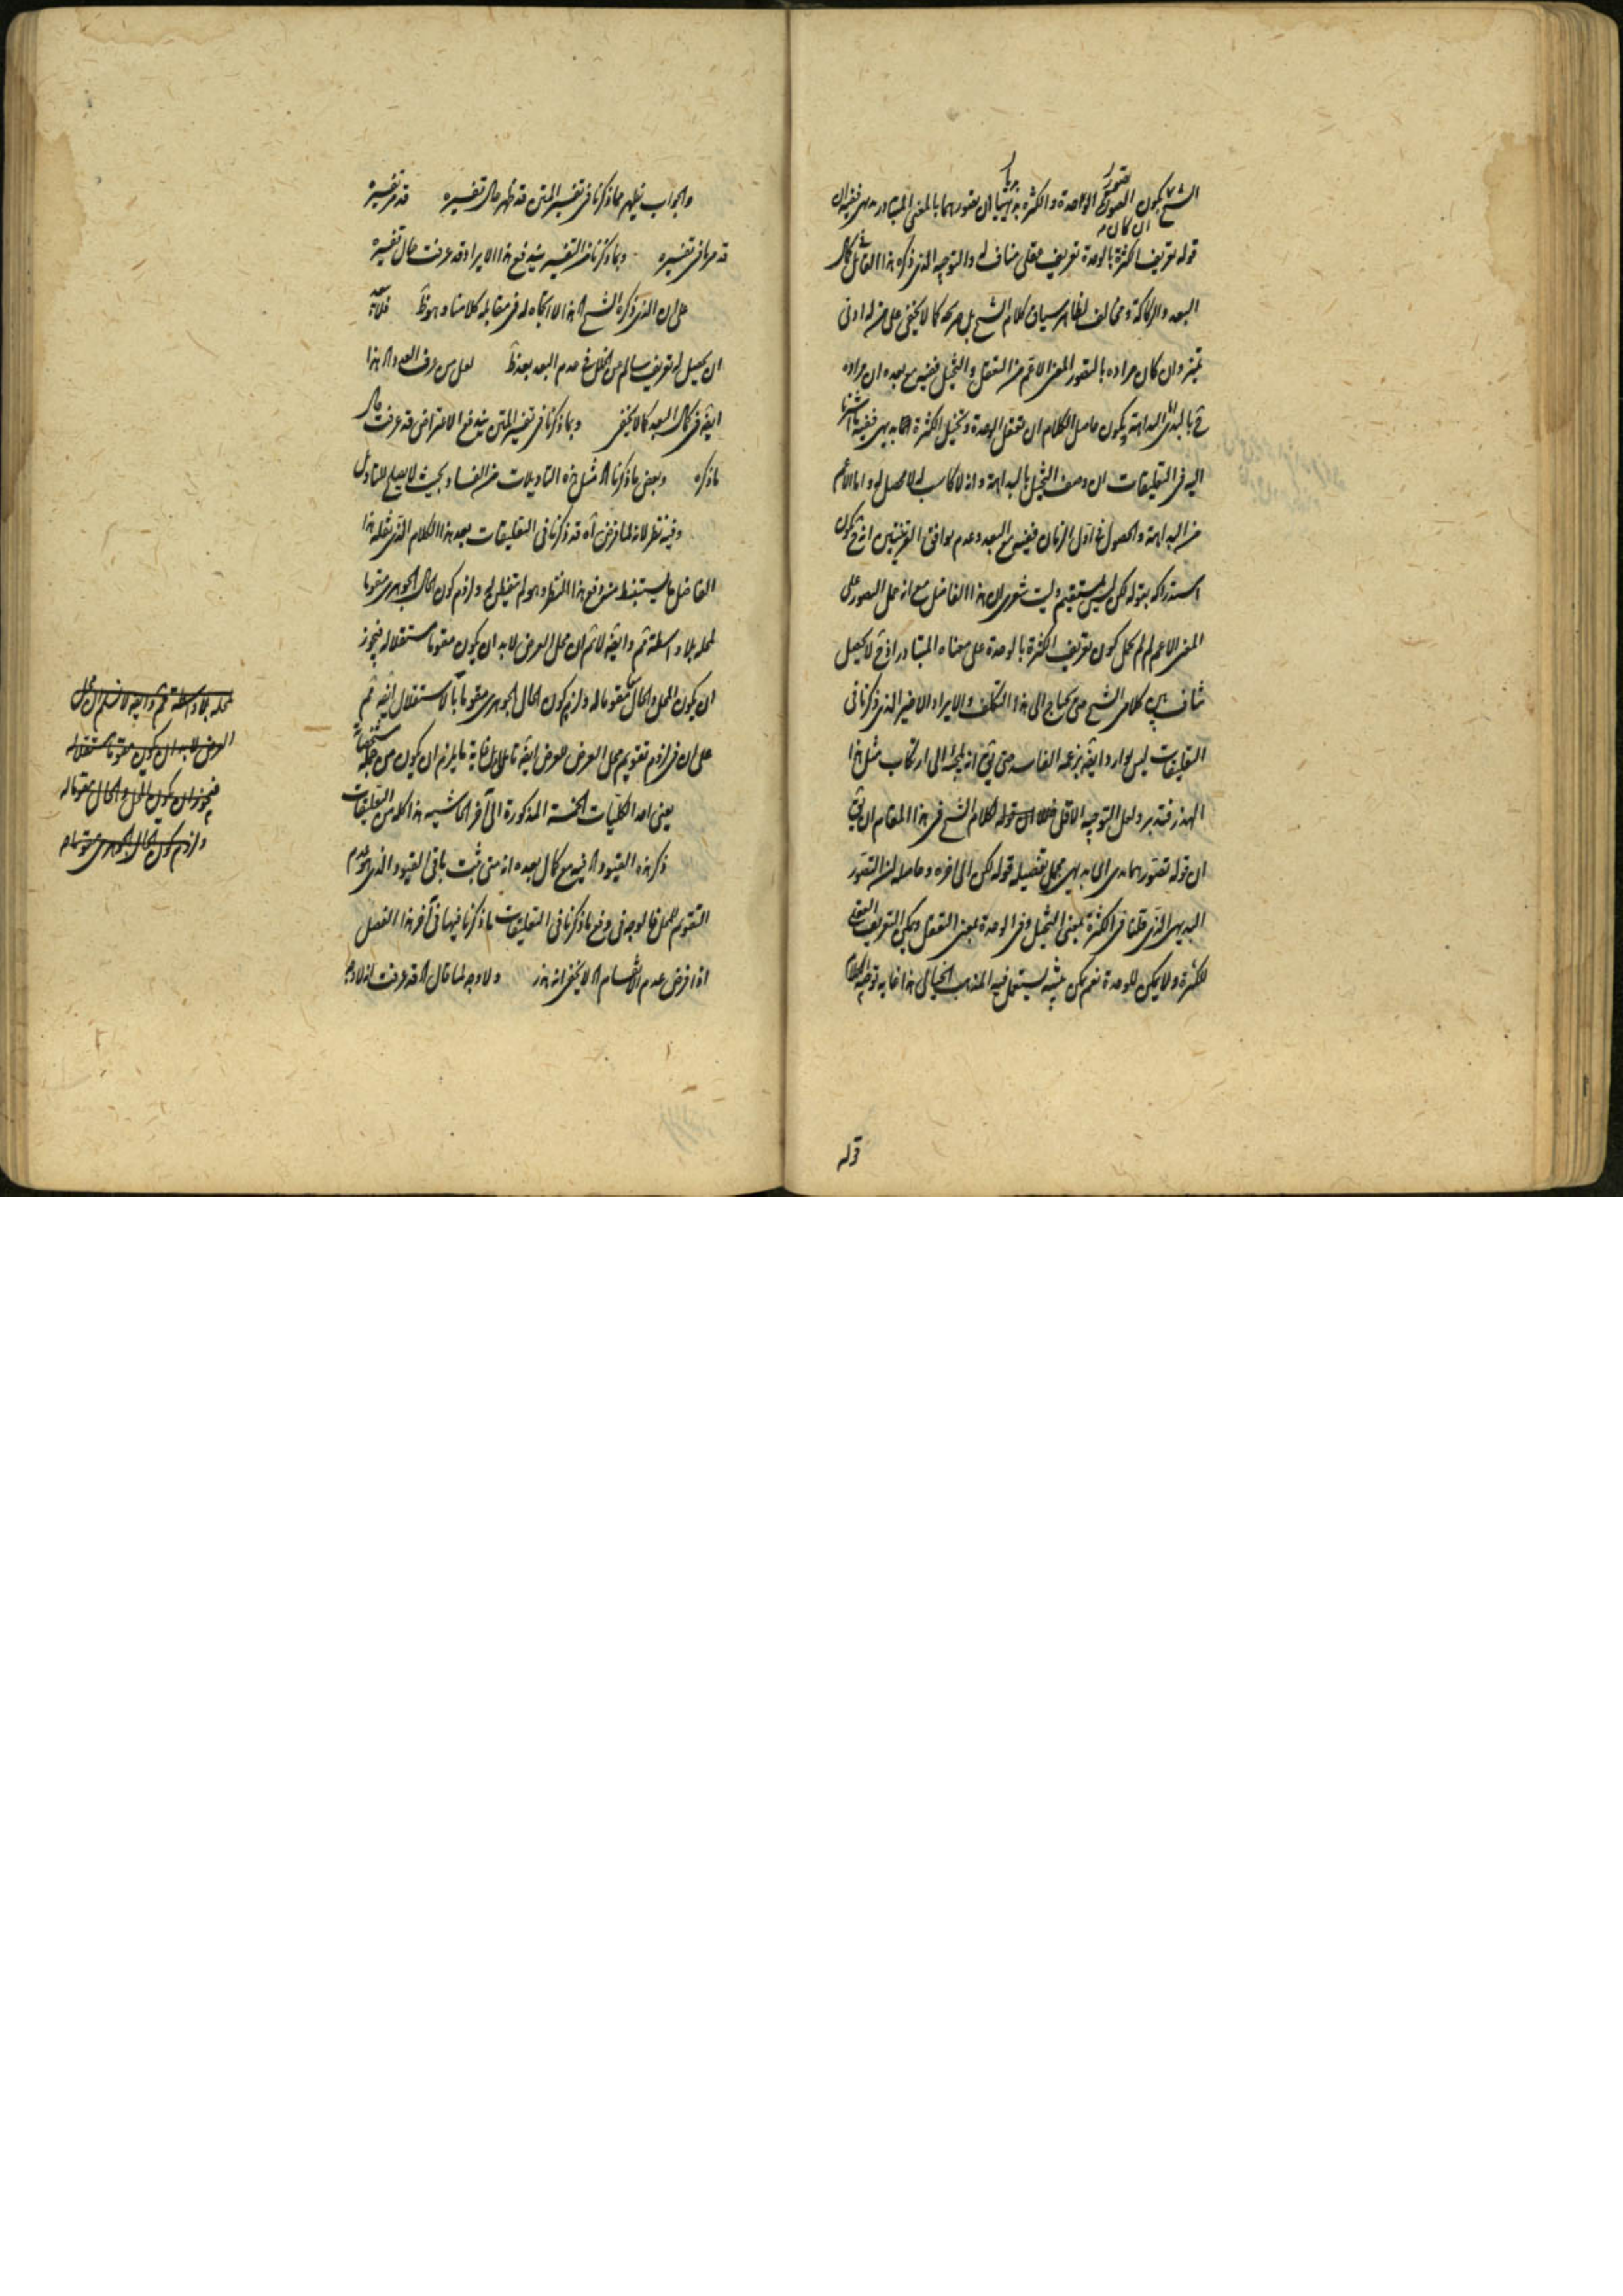 الشيخ بكون تصور الوحدة والكثرة بديهيا ان تصورهما بالمعنى المتبادر بديهي ففيه ان
قوله تعريف الكثرة بالوحدة تعريف عقلي مناف له والتوجيه الذي ذكره هذا القائل في كمال
البعد والركاكة ومخالف لظاهر سياق كلام الشيخ بل صريحه كما لا يخفى على من له ادنى
تميز وان كان مراده بالتصور المعنى الاعم من التعقل والتخيل ففيه مع بعده ان مراده
ح بالبداهة البداهة يكون حاصل الكلام ان تعقل الوحدة وتخيل الكثرة بديهي ففيه ما اشرنا
اليه في التعليقات ان وصف التخيل بالبداهة وانه لا كاسب له لا محصل له واما الاعم
من البداهة والحصول في اول الزمان ففيه مع البعد وعدم توافق القرينتين انه ح يكون
استدراكه بقوله لكن ليس بمستقيم وليت شعري ان هذا الفاضل مع انه حمل التصور على
المعنى الاعم لم لم يحمل كون تعريف الكثرة بالوحدة على معناه المتبادر اذ ح لا يحصل
تناف بين كلامي الشيخ حتى يحتاج الى هذا التكلف والايراد الاخير الذي ذكرنا في
التعليقات ليس بوارد ايضا بزعمه الفاسد حتى يق انه يلجئه الى ارتكاب مثل هذا
الهذر فتدبر ولعل التوجيه الاقل خللا لكلام الشيخ في هذا المقام ان يق
ان قوله تصورهما بديهي مجمل تفصيله قوله لكن الى اخره وحاصله ان التصور
البديهي الذي قلنا في الكثرة بمعنى التخيل وفي الوحدة بمعنى التعقل ويمكن التعريف العقلي
للكثرة ولا يمكن للوحدة نعم يمكن تنبيه يستعمل فيه المذهب الخيالي هذا غاية توجيه الكلام
قوله
والجواب يظهر مما ذكرنا في تفسير المتن قد ظهر حال تفسيره قد مر تفسيره
قد مر ما في تفسيره وبما ذكرنا من التفسير يندفع هذا الايراد قد عرفت حال تفسيره
على ان الذي ذكره الشيخ اه هذا لا اتجاه له في مقابله كلامنا وهو ظ
ان يحصل له تعريف سالم عن الخلل في عدم البعد بعد ظ لعل من عرف العدد اه هذا
ايض في كمال البعد كما لا يخفى وبما ذكرنا في تفسير المتن يندفع الاعتراض قد عرفت حال
ما ذكره وبعض ما ذكرنا اه مثل هذه التاويلات من الفساد بحيث لا يصلح للتاويل
وفيه نظر لانه لما فرض اه قد ذكرنا في التعليقات بعد هذا الكلام الذي نقله هذا
الفاضل ما يستنبط منه دفع هذا النظر وهو لم يتفطن له ولزوم كون الحال الجوهري مقوما
لمحله بلا واسطة ثم وايض لا نم ان محل العرض لابد ان يكون مقوما مستقلا له فيجوز
ان يكون المحل والحال مقوما له ولزوم كون الحال الجوهري مقوما بالاستقلال ايض ثم
على ان في لزوم تقويم محل العرض للعرض ايض تاملا بل غاية ما يلزم ان يكون من جملة مشخصاته
يعني احد الكليات الخمسة المذكورة الى آخر الحاشية هذا كله من التعليقات
ذكر هذه القيود اه فيه مع كمال بعده انه متى ثبت باقي القيود الذي هو عدم
التقويم للمحل فلا وجه في دفع ما ذكرنا في التعليقات ما ذكرنا فيها في آخر هذا الفصل
اذا فرض عدم الانقسام اه لا يخفى انه هذر ولا وجه لما قال اه قد عرفت انه لا وجه
لمحله بلا واسطة ثم وايض لا نسلم ان محل
العرض لابد ان يكون مقوما مستقلا له
فيجوز ان يكون المحل والحال مقوما له
ولزوم كون الحال الجوهري مقوما